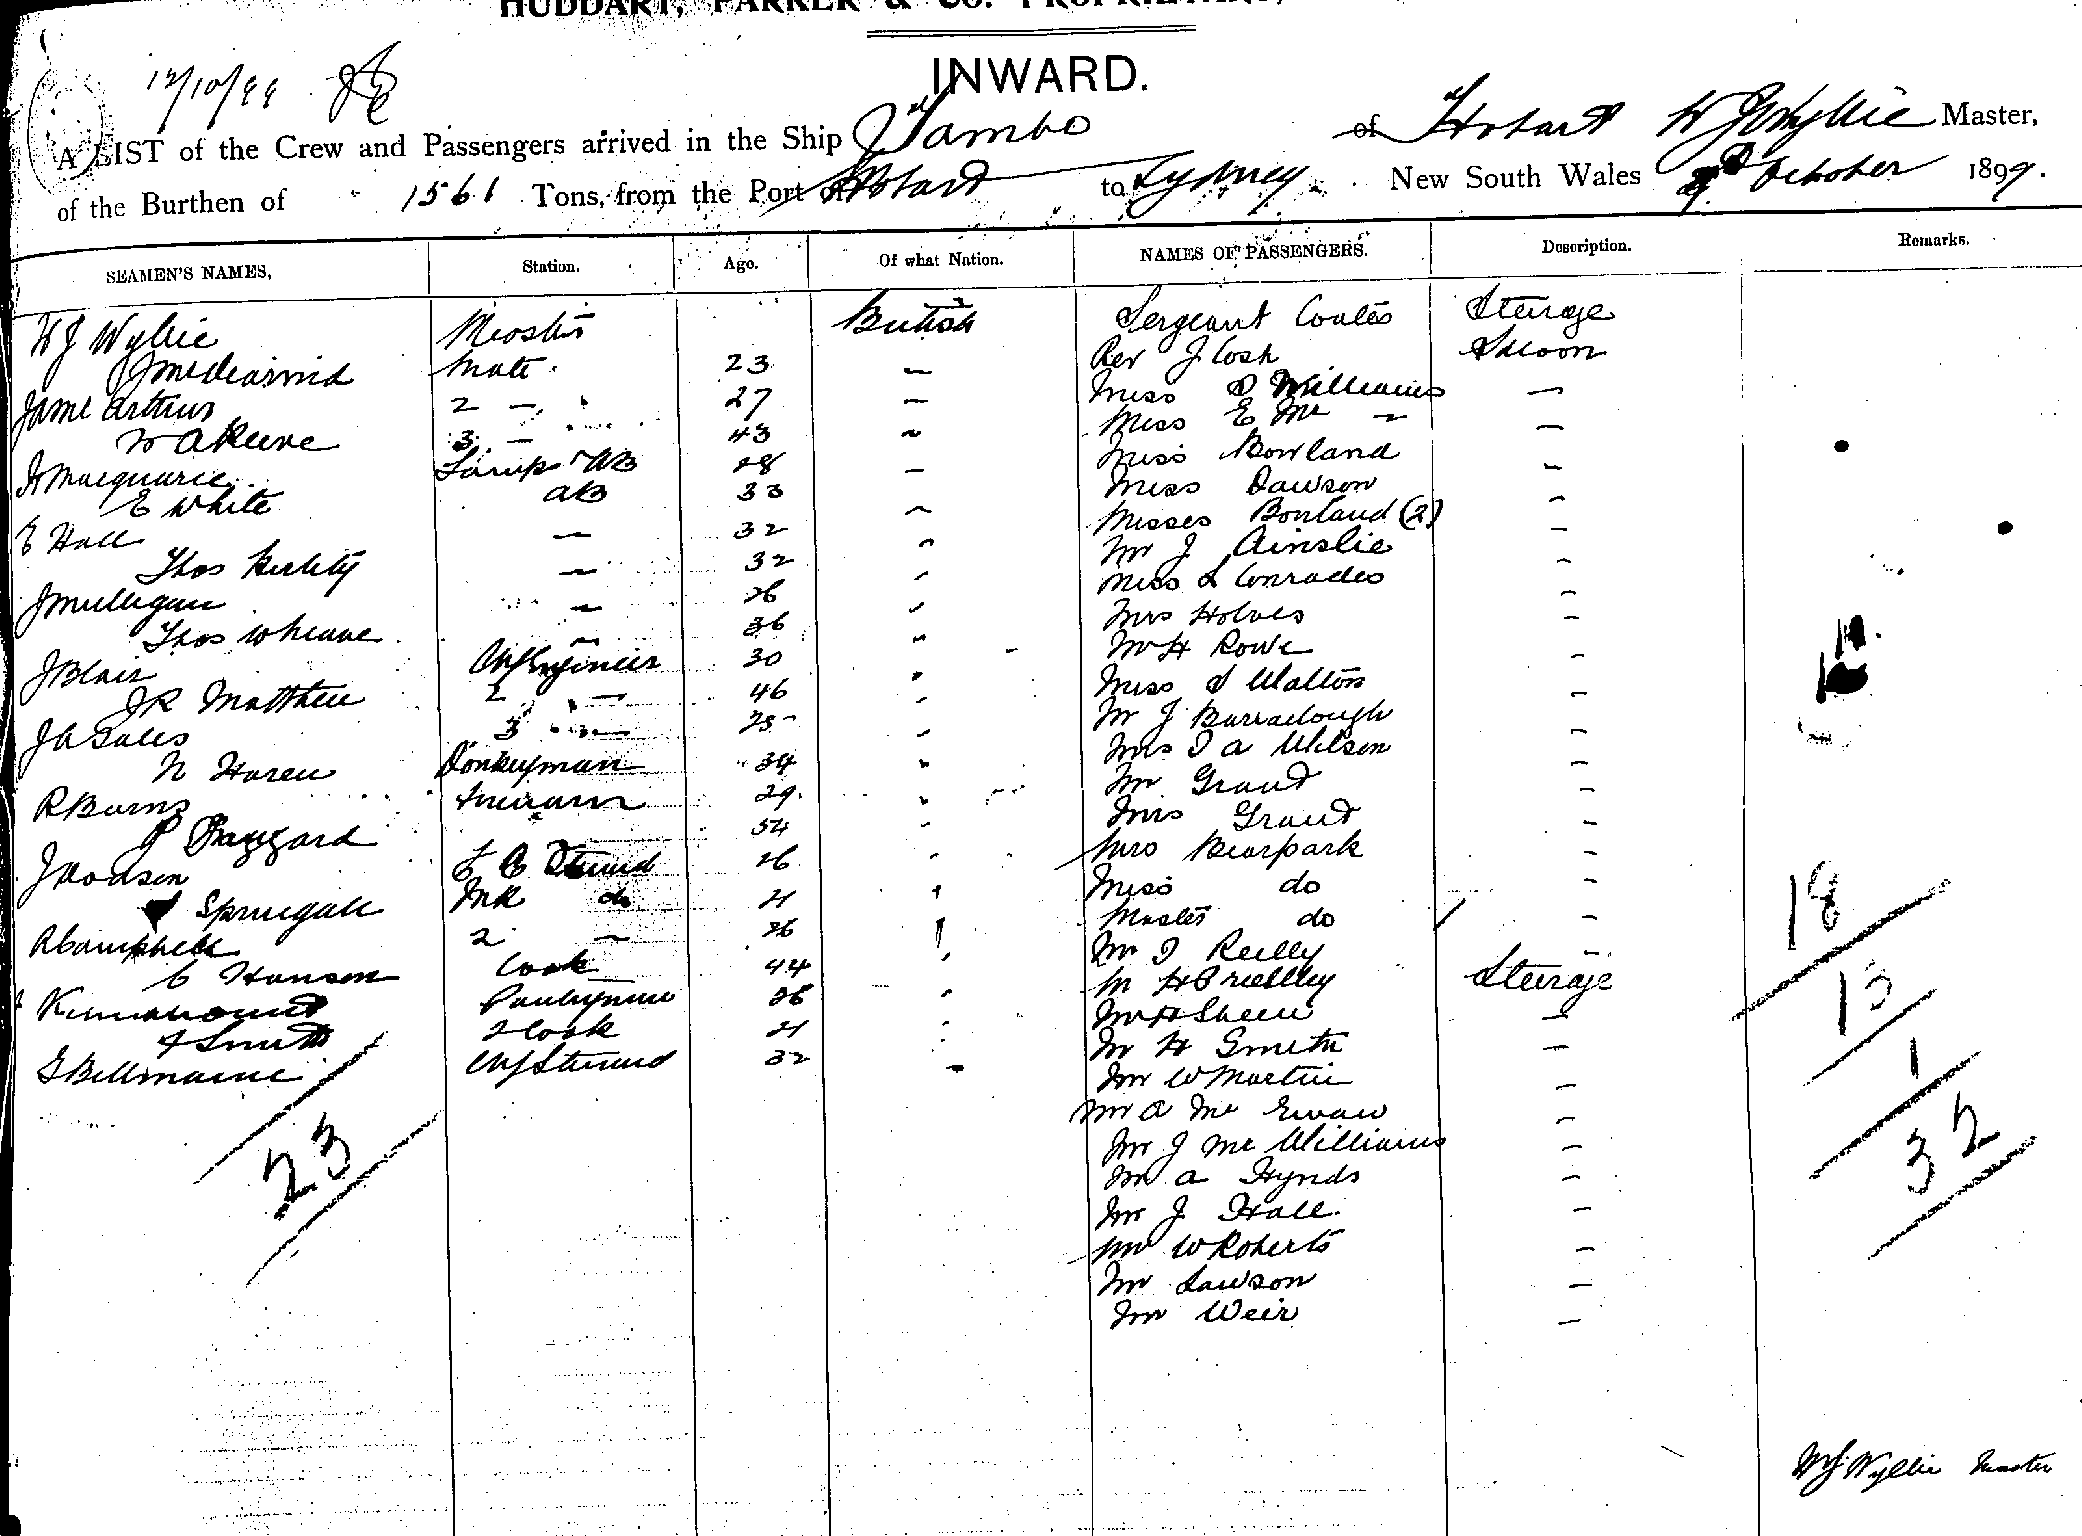 HUDDART, PARKER & Co. PROPRIETARY,
INWARD.
12/10/99
A LIST of the Crew and Passengers arrived in the Ship Tambo of Hobart W J Wyllie Master,
of the Burthen of 1561 Tons, from the Port of Hobart to Sydney New South Wales October 1899.
SEAMEN'S NAMES, Station. Age. Of what Nation. NAMES OF PASSENGERS. Description. Remarks.
W J Wyllie Master British Sergeant Coates Steerage
J McDearmid Mate 23 — Rev J Cosh Saloon
Jame Arthurs 2 — 27 — Miss D Williams —
W A Keene 3 — 43 — Miss E Mc — —
H Macquarie Lamp AB 28 — Miss Bowland —
E White AB 33 — Miss Dawson —
E Hall — 32 — Misses Bowland (2) —
Thos — 32 — Mr J Ainslie —
J Mulligan — 26 — Miss L Conrades —
Thos — 36 — Mrs Holves —
J Blair Chf Engineer 30 — Mr H Rowe —
J R Matthew 2 — 46 — Miss S Walton —
J A Gales 3 — 25 — Mr J Barraclough —
N Haren Donkeyman 34 — Mrs T A Wilson —
R Burns Fireman 29 — Mr Grant —
P Faggard 54 — Mrs Grant —
J Dodson F C Steward 26 — Mrs Bearpark —
Sprucgall do 21 Miss do —
A Campbell 2 — 26 Master do —
C Hanson Cook 44 Mr T Reilly —
Pantryman 26 Mr H Steerage
F Smith 2 Cook 21 Mr H Sheen —
G Bellmaine Chf Steward 32 — Mr H Smith —
Mr W Martin —
Mr A Mc Ewan —
Mr J Mc Williams —
Mr A Hynds —
Mr J Hall —
Mr W Roberts —
Mr Lawson —
Mr Weir —
23
18
13
1
32
W J Wyllie Master